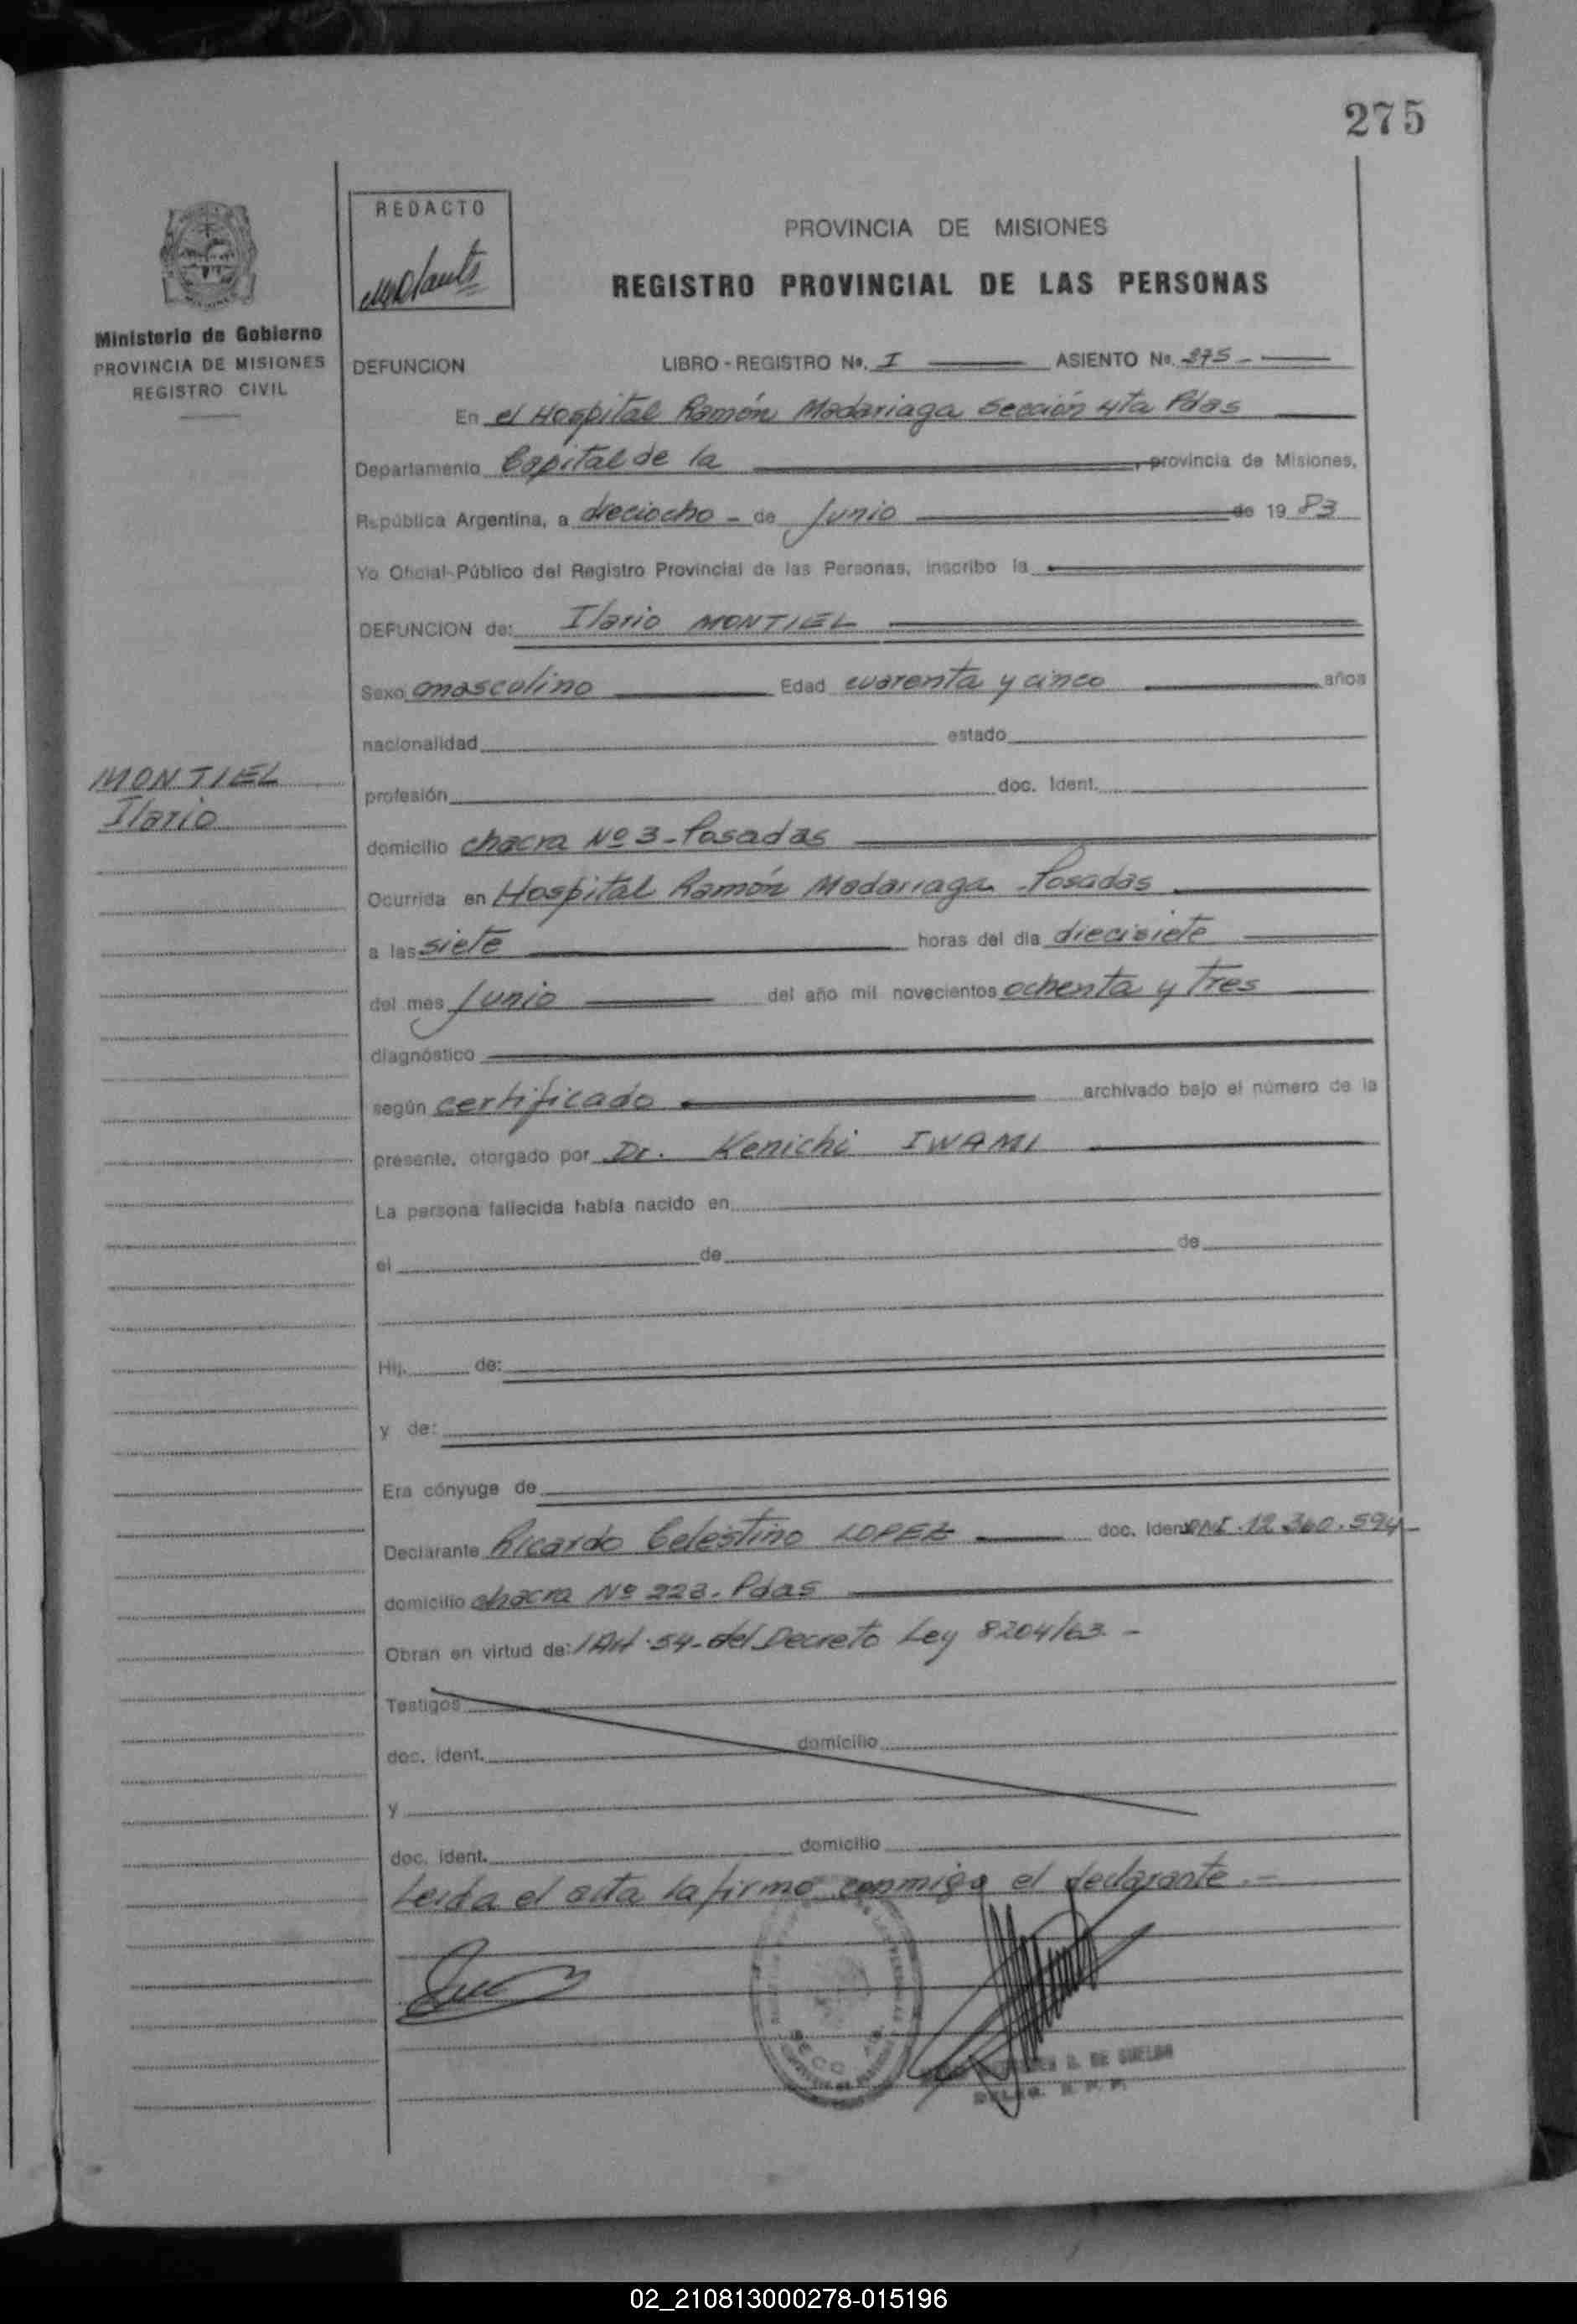 275
REDACTO
PROVINCIA DE MISIONES
REGISTRO PROVINCIAL DE LAS PERSONAS
Ministerio de Gobierno
PROVINCIA DE MISIONES
REGISTRO CIVIL
DEFUNCION LIBRO - REGISTRO Nº. I ASIENTO Nº. 275 -
En el Hospital Ramón Madariaga Sección 4ta Pdas
Departamento Capital de la , provincia de Misiones,
República Argentina, a dieciocho - de Junio de 19 83
Yo Oficial Público del Registro Provincial de las Personas, inscribo la
DEFUNCION de: Ilario MONTIEL
Sexo masculino Edad cuarenta y cinco años
nacionalidad estado
MONTIEL
Ilario
profesión doc. Ident.
domicilio chacra Nº 3 - Posadas
Ocurrida en Hospital Ramón Madariaga - Posadas
a las siete horas del día diecisiete
del mes Junio del año mil novecientos ochenta y tres
diagnóstico
según certificado archivado bajo el número de la
presente, otorgado por Dr. Kenichi IWAMI
La persona fallecida había nacido en
el de de
Hij. de:
y de:
Era cónyuge de
Declarante Ricardo Celestino LOPEZ doc. Iden DNI. 12.360.594
domicilio chacra Nº 223. Pdas
Obran en virtud de: /Art. 54 - del Decreto Ley 8204/63. -
Testigos
doc. ident. domicilio
y
doc. ident. domicilio
Leída el acta la firmo conmigo el declarante. -
02_210813000278-015196